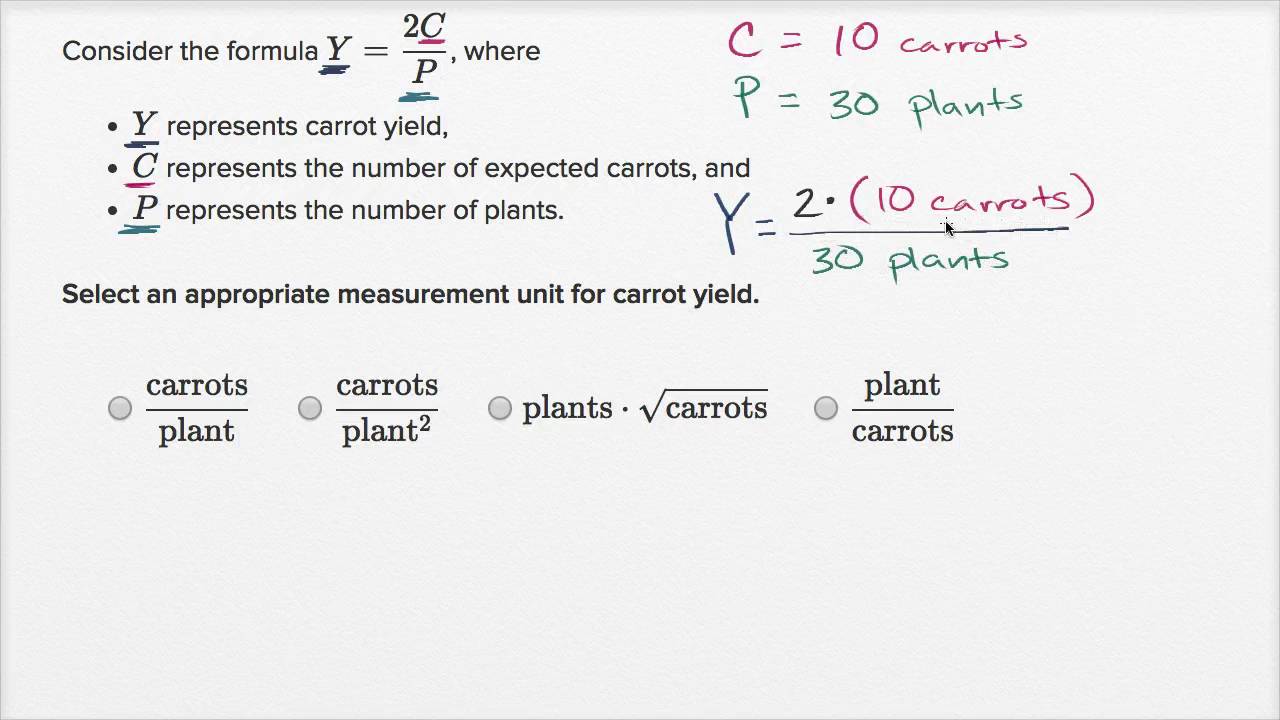 Consider the formula Y = 2C/P, where
• Y represents carrot yield,
• C represents the number of expected carrots, and
• P represents the number of plants.
C = 10 carrots
P = 30 plants
Y = 2 · (10 carrots)
30 plants
Select an appropriate measurement unit for carrot yield.
carrots/plant carrots/plant² plants · √carrots plant/carrots